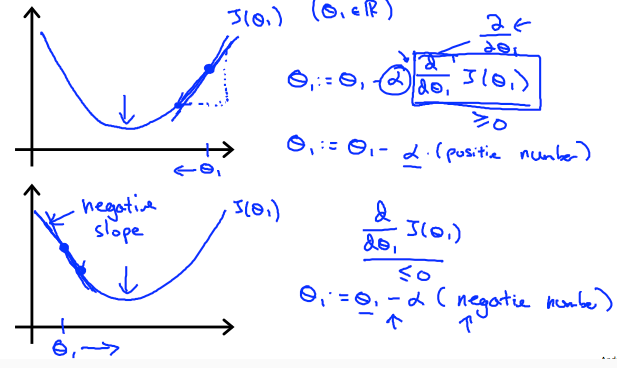 J(Θ₁) (Θ₁ ∈ ℝ)
∂/∂Θ₁
Θ₁ := Θ₁ - α d/dΘ₁ J(Θ₁)
≥ 0
Θ₁ := Θ₁ - α · (positie number)
← Θ₁
negative slope
J(Θ₁)
d/dΘ₁ J(Θ₁)
≤ 0
Θ₁ := Θ₁ - α (negatie number)
Θ₁ →